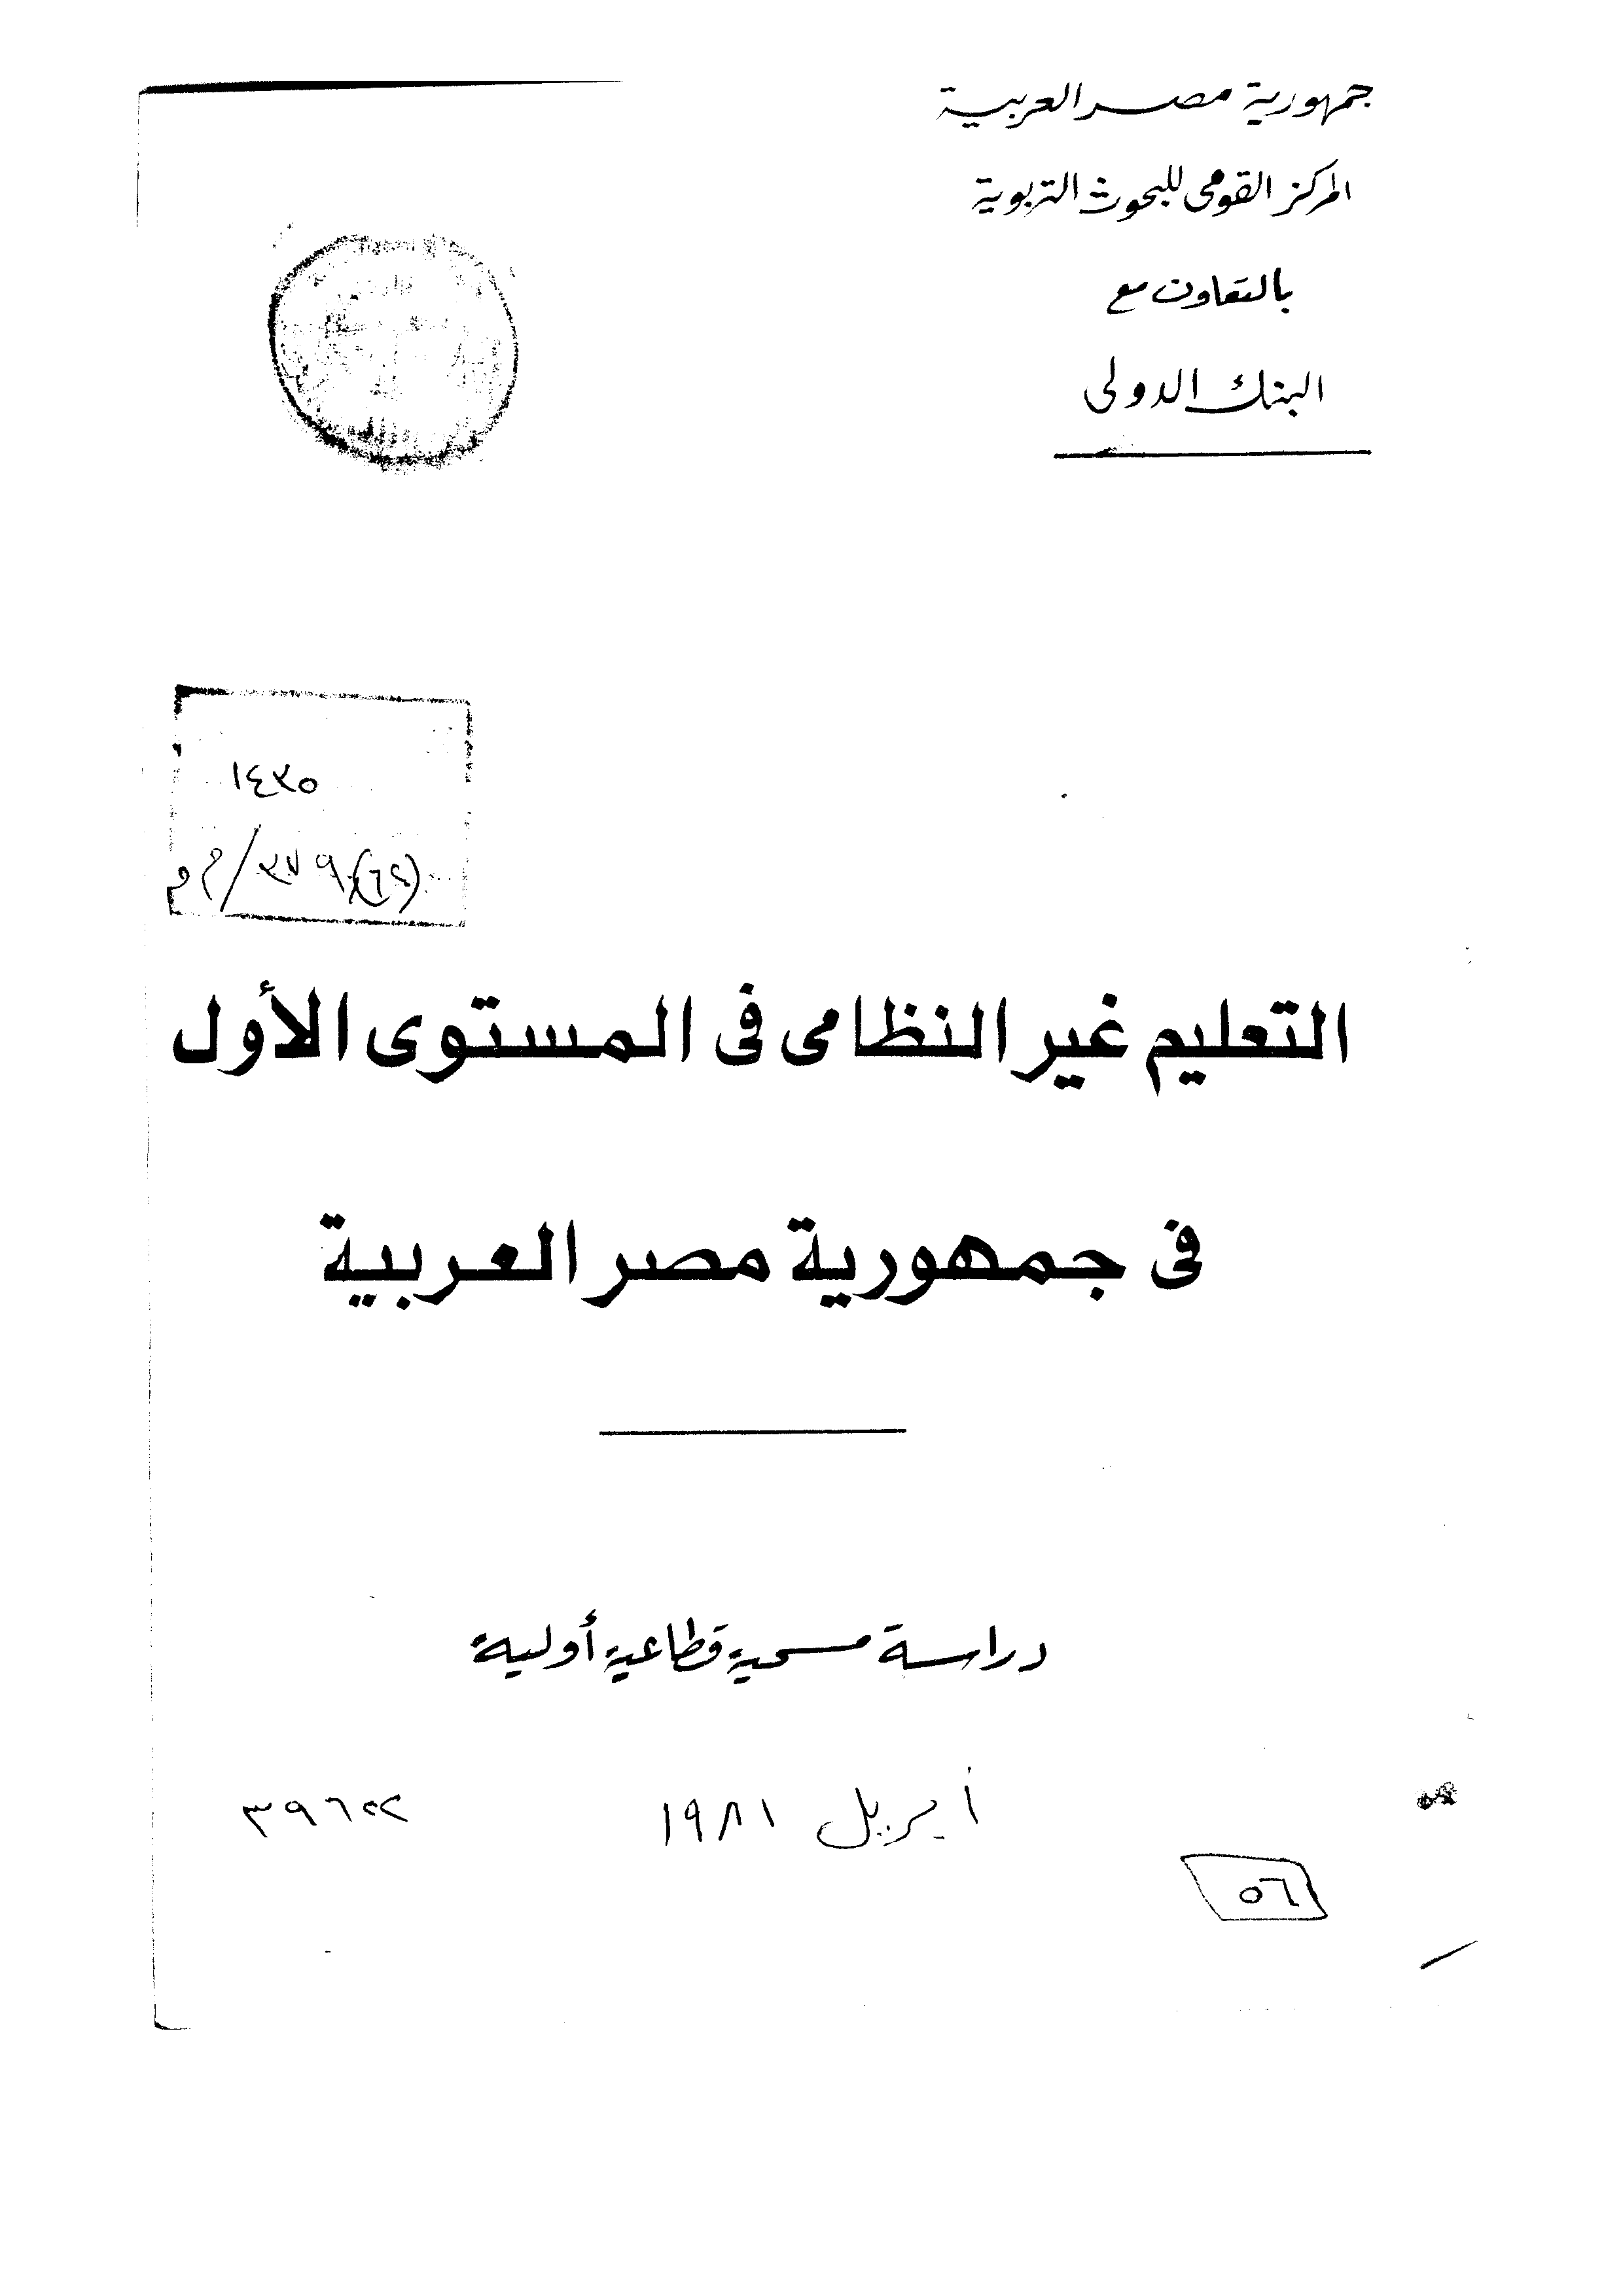 جمهورية مصر العربية
المركز القومى للبحوث التربوية
بالتعاون مع
البنك الدولى
التعليم غير النظامى فى المستوى الأول
فى جمهورية مصر العربية
دراسة مسحية قطاعية أولية
أبريل ١٩٨١
٥٦